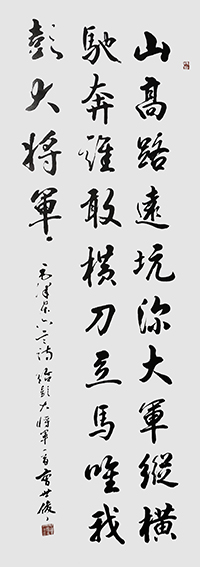 山高路遠坑深大軍縱橫
馳奔誰敢橫刀立馬唯我
彭大將軍
毛澤東六言詩給彭大將軍一首